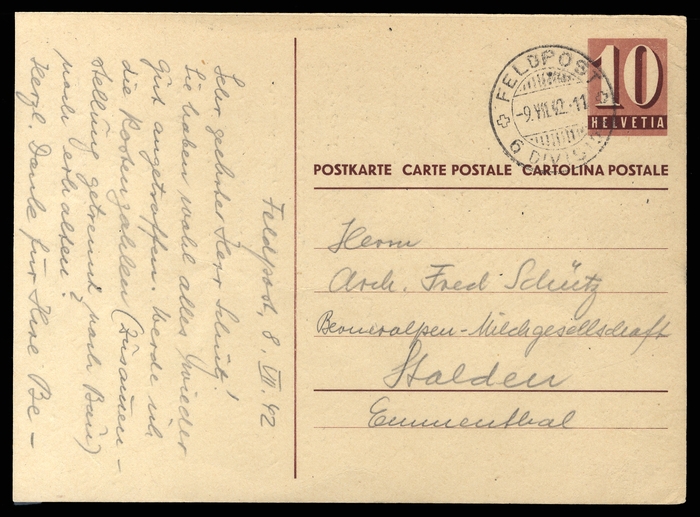 Feldpost, 8. VII. 42
Sehr geehrter Herr Schütz!
Sie haben wohl alles wieder
gut angetroffen. Werde ich
die Kostenzahlen (Zusammen-
stellung getrennt nach Bau)
noch erhalten?
Herzl. Danke für Ihre Be-
10
HELVETIA
FELDPOST
-9.VII.42.-11
6 DIVISION
POSTKARTE CARTE POSTALE CARTOLINA POSTALE
Herrn
Arch. Fred Schütz
Berneralpen-Milchgesellschaft
Stalden
Emmenthal